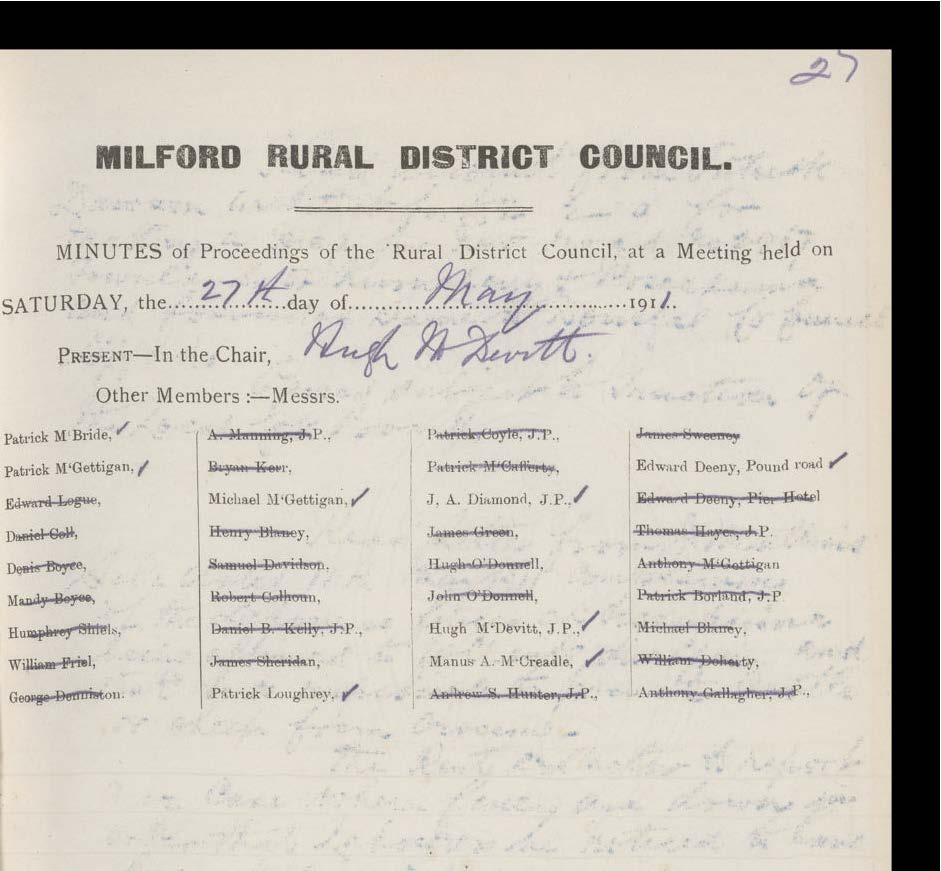 27
MILFORD RURAL DISTRICT COUNCIL.
MINUTES of Proceedings of the Rural District Council, at a Meeting held on
SATURDAY, the 27th day of May 1911.
PRESENT—In the Chair, Hugh McDevitt.
Other Members :—Messrs.
Patrick M'Bride, ✓ A. Manning, J.P., Patrick Coyle, J.P., James Sweeney
Patrick M'Gettigan, ✓ Bryan Kerr, Patrick M'Cafferty, Edward Deeny, Pound road ✓
Edward Logue, Michael M'Gettigan, ✓ J. A. Diamond, J.P., ✓ Edward Deeny, Pier Hotel
Daniel Coll, Henry Blaney, James Green, Thomas Hayes, J.P.
Denis Boyce, Samuel Davidson, Hugh O'Donnell, Anthony M'Gettigan
Mandy Boyce, Robert Colhoun, John O'Donnell, Patrick Borland, J.P.
Humphrey Shiels, Daniel B. Kelly, J.P., Hugh M'Devitt, J.P., ✓ Michael Blaney,
William Friel, James Sheridan, Manus A. M'Creadle, ✓ William Doherty,
George Denniston. Patrick Loughrey, ✓ Andrew S. Hunter, J.P., Anthony Gallagher, J.P.,